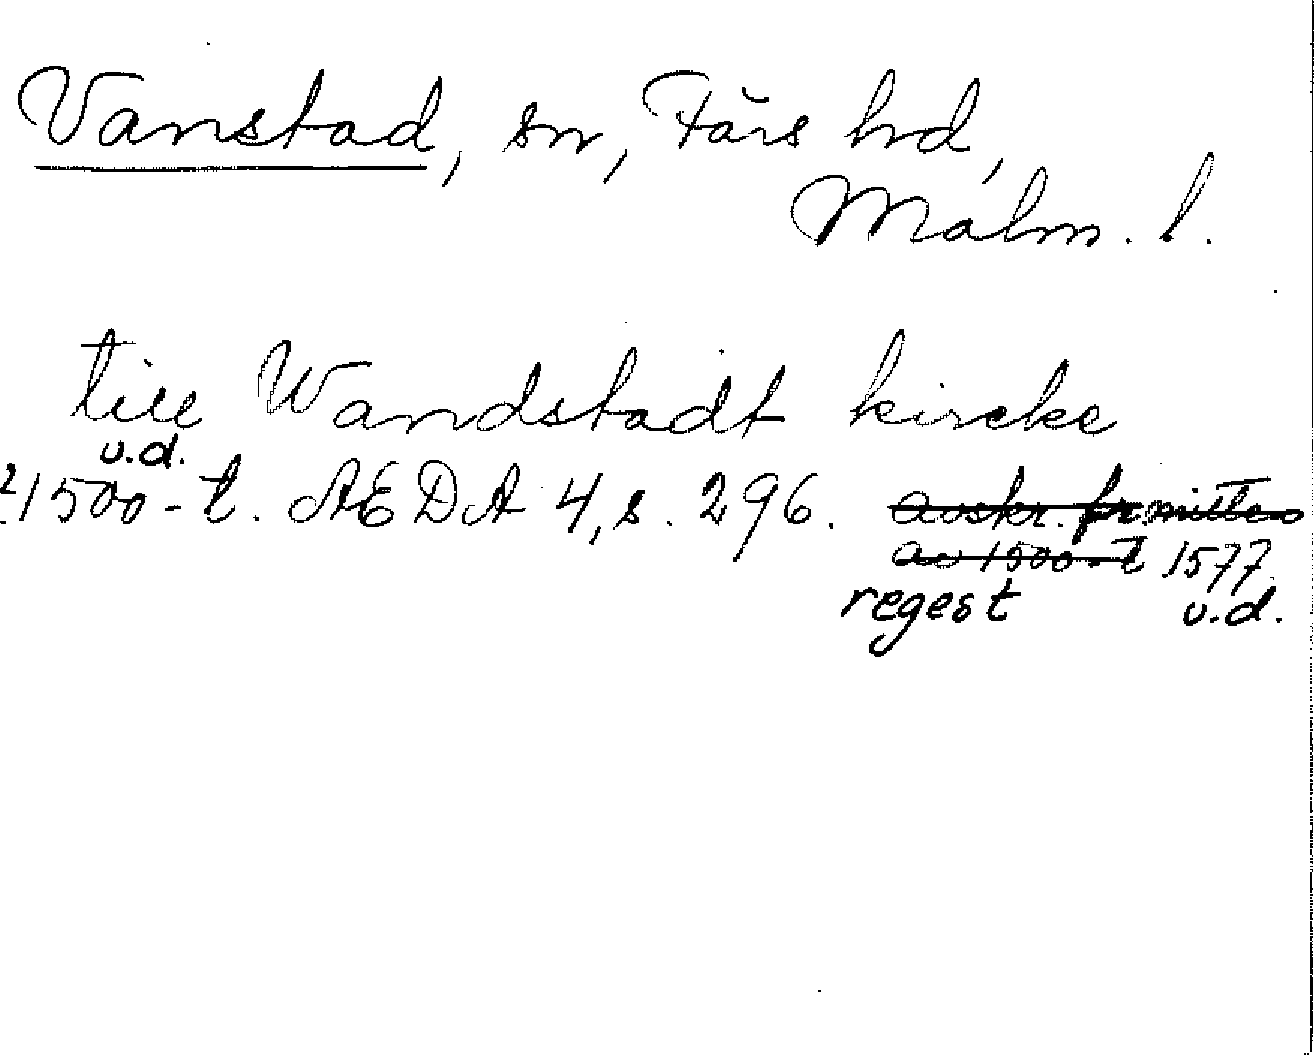 Vanstad, sn, Färs hd,
Malm. l.
till Wandstadt kircke
u.d.
1500-t. AEDA 4, s. 296. avskr. fr mitten
av 1500-t 1577
regest u.d.